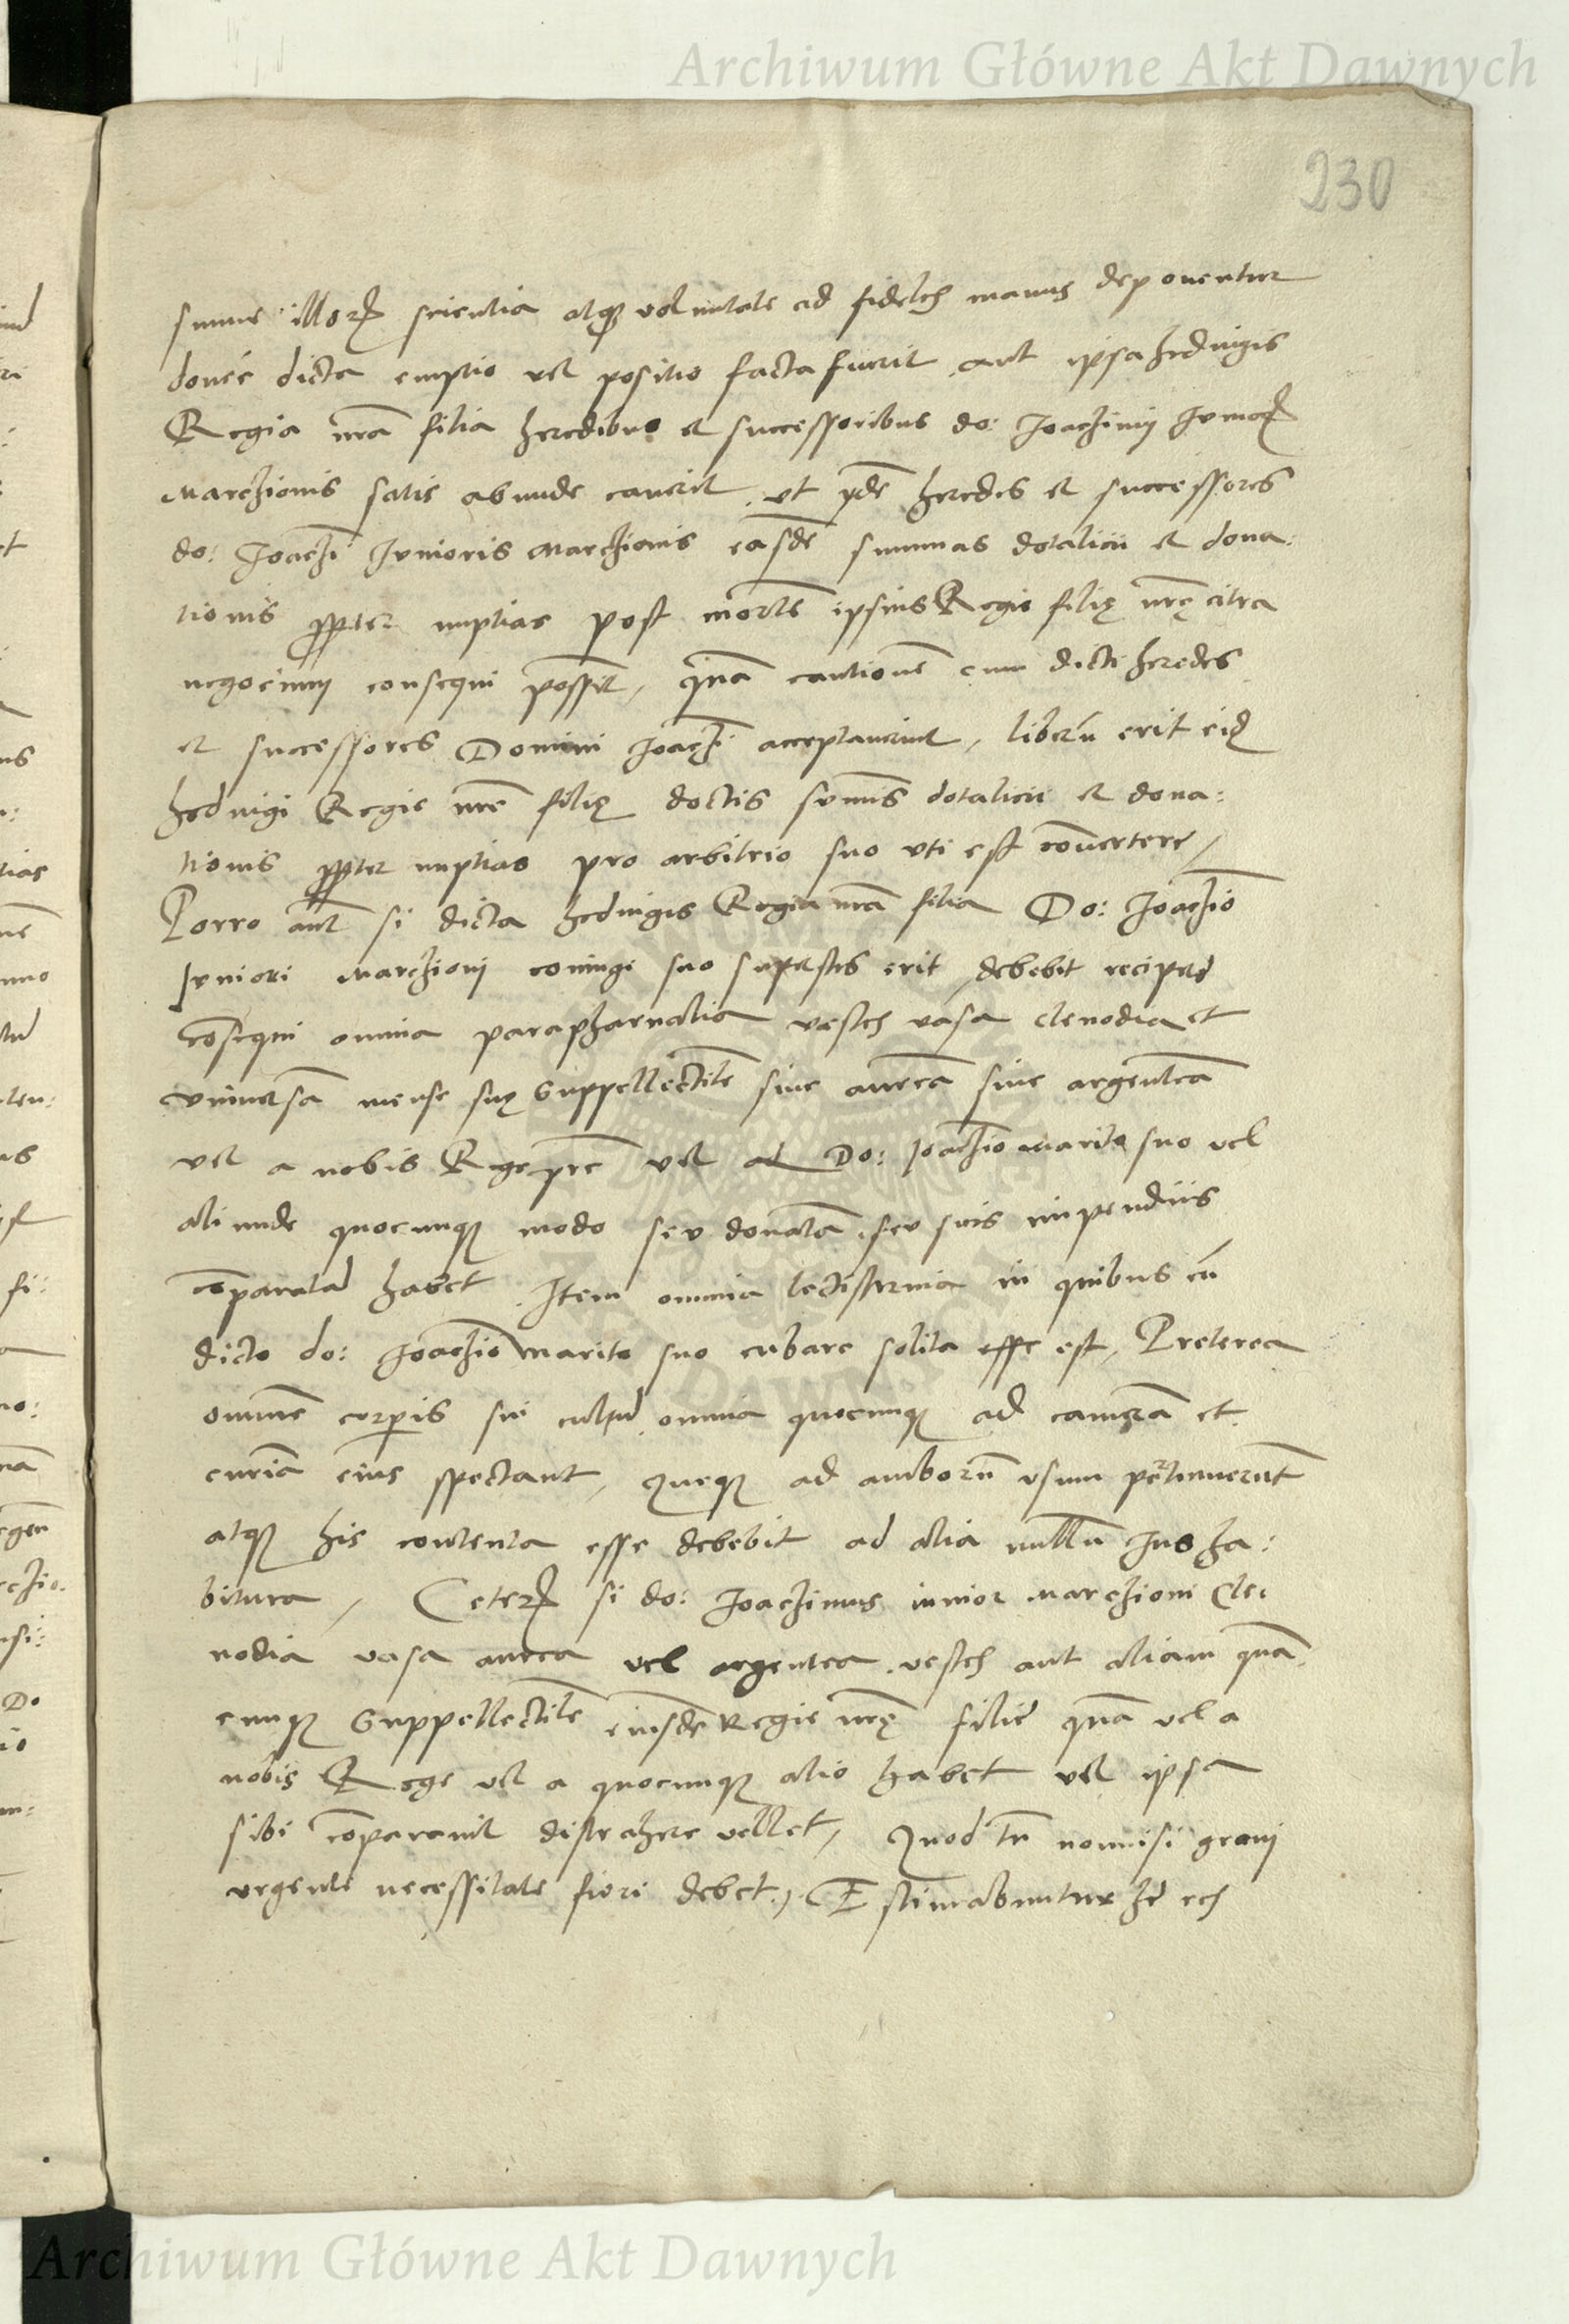 Archiwum Główne Akt Dawnych
230
summe illorꝝ scientia atqꝫ voluntate ad fideles manus deponentur
donec dicta emptio vel positio facta fuerit aut ipsa hedvigis
Regia nr̃a filia heredibus et successoribus do: Joachimi
Marchionis satis abunde caverit, vt heredes et successores
do: Joachi Junioris Marchionis easdẽ summas dotalicii et dona:
tionis ꝓpter nuptias post mortẽ ipsius Regie filię nr̃ę citra
negocium consequi possint, quã cautionẽ cum dicti heredes
et successores Domini Joachi acceptaverint, liberũ erit eid
hedvigi Regie nr̃e filię dictis sum̃is dotalicii et dona:
tionis ꝓpter nuptias pro arbitrio suo vti est convertere,
Porro aut̃ si dicta hedvigis Regia nr̃a filia Do: Joachĩo
Juniori Marchioni coniugi suo supestes erit, debebit recipere
cõsequi omnia parapharnalia vestes vasa clenodia et
vniversã mense suę suppellectilẽ sive aureã sive argenteã
vel a nobis Rege pr̃e vel ad Do: Joachĩo Marito suo vel
aliunde quocunqꝫ modo seu donatã, seu suis impendiis
cõparatam habet. Item omnia lectisternia in quibus cũ
dicto do: Joachĩo Marito suo cubare solita esse est, Preterea
omnẽ corporis sui cultum omnia quecunqꝫ ad camerã et
curiã eius spectant, queqꝫ ad amborũ vsum pertinuerũt
atqꝫ his contenta esse debebit ad alia nullũ Jus ha:
bitura, Ceterꝝ si do: Joachimus iunior Marchioni Cle:
nodia vasa aurea vel argentea, vestes aut aliam quã
cunqꝫ suppellectilẽ eiusdẽ Regie nr̃ę filie quã vel a
nobis Rege vel a quocunqꝫ alio habet vel ipsa
sibi cõparavit distrahere vellet, Quod tñ nonnisi gravi
vrgente necessitate fieri debet, Estimabuntur he res
Archiwum Główne Akt Dawnych